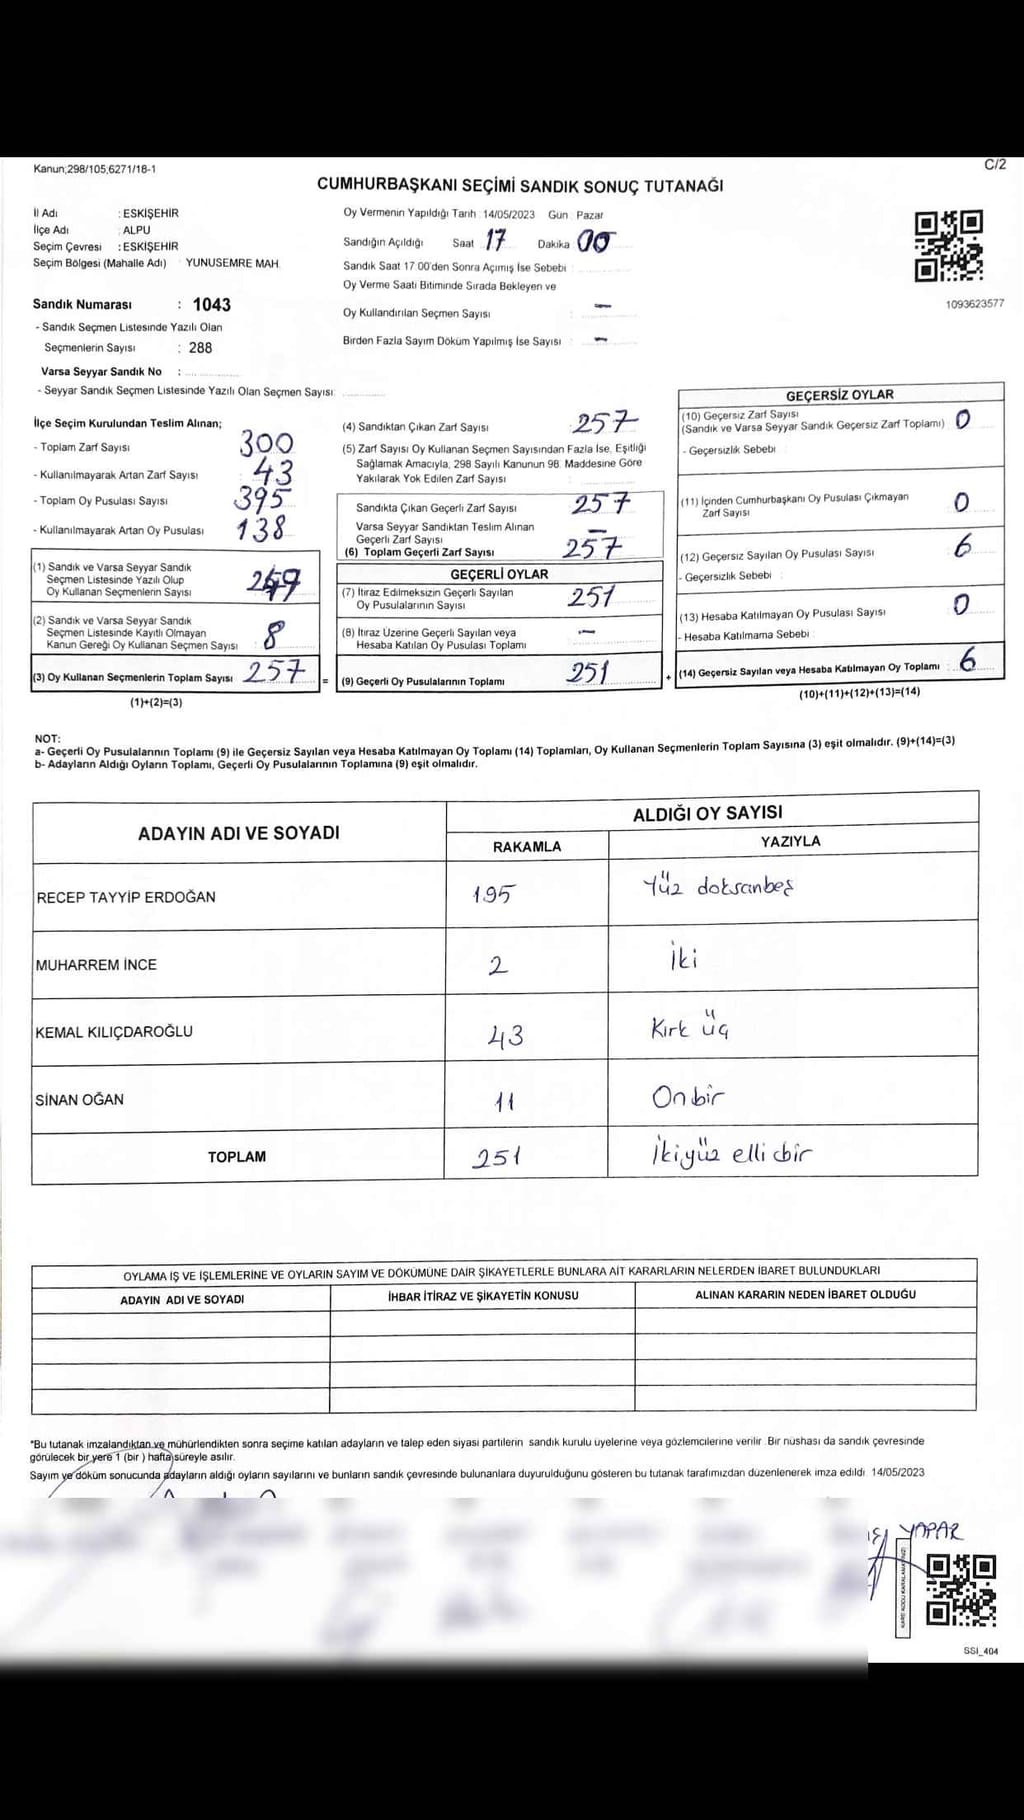 Kanun;298/105;6271/18-1
C/2
CUMHURBAŞKANI SEÇİMİ SANDIK SONUÇ TUTANAĞI
İl Adı : ESKİŞEHİR
İlçe Adı : ALPU
Seçim Çevresi : ESKİŞEHİR
Seçim Bölgesi (Mahalle Adı) YUNUSEMRE MAH
Sandık Numarası : 1043
- Sandık Seçmen Listesinde Yazılı Olan
Seçmenlerin Sayısı : 288
Varsa Seyyar Sandık No :
- Seyyar Sandık Seçmen Listesinde Yazılı Olan Seçmen Sayısı
Oy Vermenin Yapıldığı Tarih 14/05/2023 Gün Pazar
Sandığın Açıldığı Saat 17 Dakika 00
Sandık Saat 17:00'den Sonra Açımış İse Sebebi
Oy Verme Saati Bitiminde Sırada Bekleyen ve
Oy Kullandırılan Seçmen Sayısı : —
Birden Fazla Sayım Döküm Yapılmış İse Sayısı : —
1093623577
İlçe Seçim Kurulundan Teslim Alınan;
- Toplam Zarf Sayısı 300
- Kullanılmayarak Artan Zarf Sayısı 43
- Toplam Oy Pusulası Sayısı 395
- Kullanılmayarak Artan Oy Pusulası 138
(1) Sandık ve Varsa Seyyar Sandık
Seçmen Listesinde Yazılı Olup
Oy Kullanan Seçmenlerin Sayısı 249
(2) Sandık ve Varsa Seyyar Sandık
Seçmen Listesinde Kayıtlı Olmayan
Kanun Gereği Oy Kullanan Seçmen Sayısı 8
(3) Oy Kullanan Seçmenlerin Toplam Sayısı 257 =
(1)+(2)=(3)
(4) Sandıktan Çıkan Zarf Sayısı 257
(5) Zarf Sayısı Oy Kullanan Seçmen Sayısından Fazla İse, Eşitliği
Sağlamak Amacıyla, 298 Sayılı Kanunun 98. Maddesine Göre
Yakılarak Yok Edilen Zarf Sayısı
Sandıkta Çıkan Geçerli Zarf Sayısı 257
Varsa Seyyar Sandıktan Teslim Alınan
Geçerli Zarf Sayısı —
(6) Toplam Geçerli Zarf Sayısı 257
GEÇERLİ OYLAR
(7) İtiraz Edilmeksizin Geçerli Sayılan
Oy Pusulalarının Sayısı 251
(8) İtiraz Üzerine Geçerli Sayılan veya
Hesaba Katılan Oy Pusulası Toplamı —
(9) Geçerli Oy Pusulalarının Toplamı 251 +
GEÇERSİZ OYLAR
(10) Geçersiz Zarf Sayısı
(Sandık ve Varsa Seyyar Sandık Geçersiz Zarf Toplamı) 0
- Geçersizlik Sebebi
(11) İçinden Cumhurbaşkanı Oy Pusulası Çıkmayan
Zarf Sayısı 0
(12) Geçersiz Sayılan Oy Pusulası Sayısı 6
- Geçersizlik Sebebi
(13) Hesaba Katılmayan Oy Pusulası Sayısı 0
- Hesaba Katılmama Sebebi
(14) Geçersiz Sayılan veya Hesaba Katılmayan Oy Toplamı : 6
(10)+(11)+(12)+(13)=(14)
NOT:
a- Geçerli Oy Pusulalarının Toplamı (9) ile Geçersiz Sayılan veya Hesaba Katılmayan Oy Toplamı (14) Toplamları, Oy Kullanan Seçmenlerin Toplam Sayısına (3) eşit olmalıdır. (9)+(14)=(3)
b- Adayların Aldığı Oyların Toplamı, Geçerli Oy Pusulalarının Toplamına (9) eşit olmalıdır.
ADAYIN ADI VE SOYADI
ALDIĞI OY SAYISI
RAKAMLA YAZIYLA
RECEP TAYYİP ERDOĞAN 195 Yüz doksanbeş
MUHARREM İNCE 2 İki
KEMAL KILIÇDAROĞLU 43 Kırk üç
SİNAN OĞAN 11 Onbir
TOPLAM 251 İkiyüz elli bir
OYLAMA İŞ VE İŞLEMLERİNE VE OYLARIN SAYIM VE DÖKÜMÜNE DAİR ŞİKAYETLERLE BUNLARA AİT KARARLARIN NELERDEN İBARET BULUNDUKLARI
ADAYIN ADI VE SOYADI İHBAR İTİRAZ VE ŞİKAYETİN KONUSU ALINAN KARARIN NEDEN İBARET OLDUĞU
*Bu tutanak imzalandıktan ve mühürlendikten sonra seçime katılan adayların ve talep eden siyasi partilerin sandık kurulu üyelerine veya gözlemcilerine verilir. Bir nüshası da sandık çevresinde
görülecek bir yere 1 (bir ) hafta süreyle asılır.
Sayım ve döküm sonucunda adayların aldığı oyların sayılarını ve bunların sandık çevresinde bulunanlara duyurulduğunu gösteren bu tutanak tarafımızdan düzenlenerek imza edildi 14/05/2023
YAPAR
SSI_404